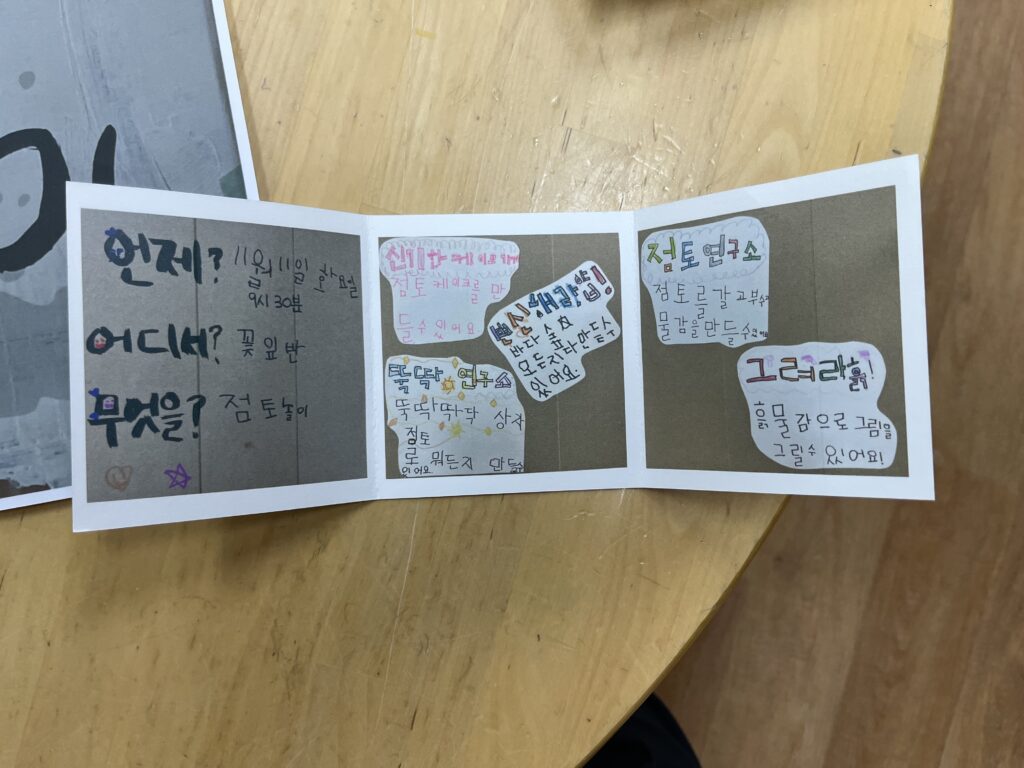 언제? 11월 11일 화요일
9시 30분
어디서? 꽃잎반
무엇을? 점토놀이
신기한 케이크 가게
점토 케이크를 만
들수 있어요
변신! 해랑쌉!
바다 숲 효
모든지 다 만들수
있어요.
뚝딱 연구소
뚝딱딱딱 상자
점토
로 뭐든지 만들수
있어요
점토연구소
점토를 갈고 부수고
물감을 만들수
그려라 흙!
흙물감으로 그림을
그릴수 있어요!